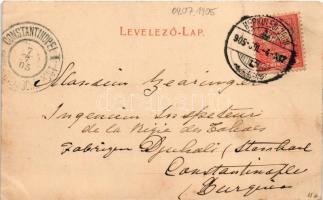 04.07.1905
LEVELEZŐ-LAP.
CONSTANTINOPEL
7
7
05
905
Monsieur Gearinger
Ingenieur Inspekteur
de la Régie des Tabacs
Fabriqen Djubali (Stamboul
Constantinople
Turquie